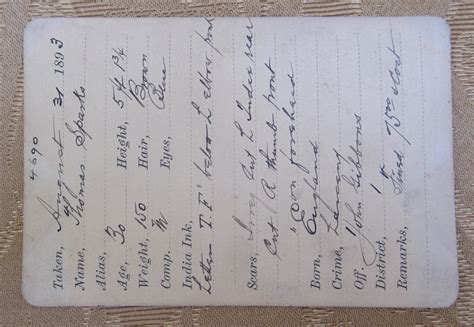 4690
Taken, August 31 1893
Name, Thomas Sparks
Alias,
Age, 30 Height, 5 4 1¾
Weight, 150 Hair, Brown
Comp. M Eyes, Blue
India Ink,
Letter T. F. below L Elbow front
Scars, Irreg Cut L Index rear
Cut R thumb front
" on forehead
Born, England
Crime, Larceny
Off. John Gibbons
District, 1st
Remarks, Fined